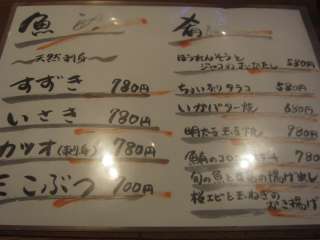 魚
〜天然刺身〜
すずき 780円
いさき 780円
カツオ(刺身) 780円
三こぶつ 700円
肴
ほうれんそうと
ジャコのおひたし 580円
ちょいあぶりタラコ 580円
いかバター焼 650円
明太玉子焼 780円
鯖のコロッケ 780
旬の魚と豆の揚げ出し
桜エビと玉ねぎの
かき揚げ